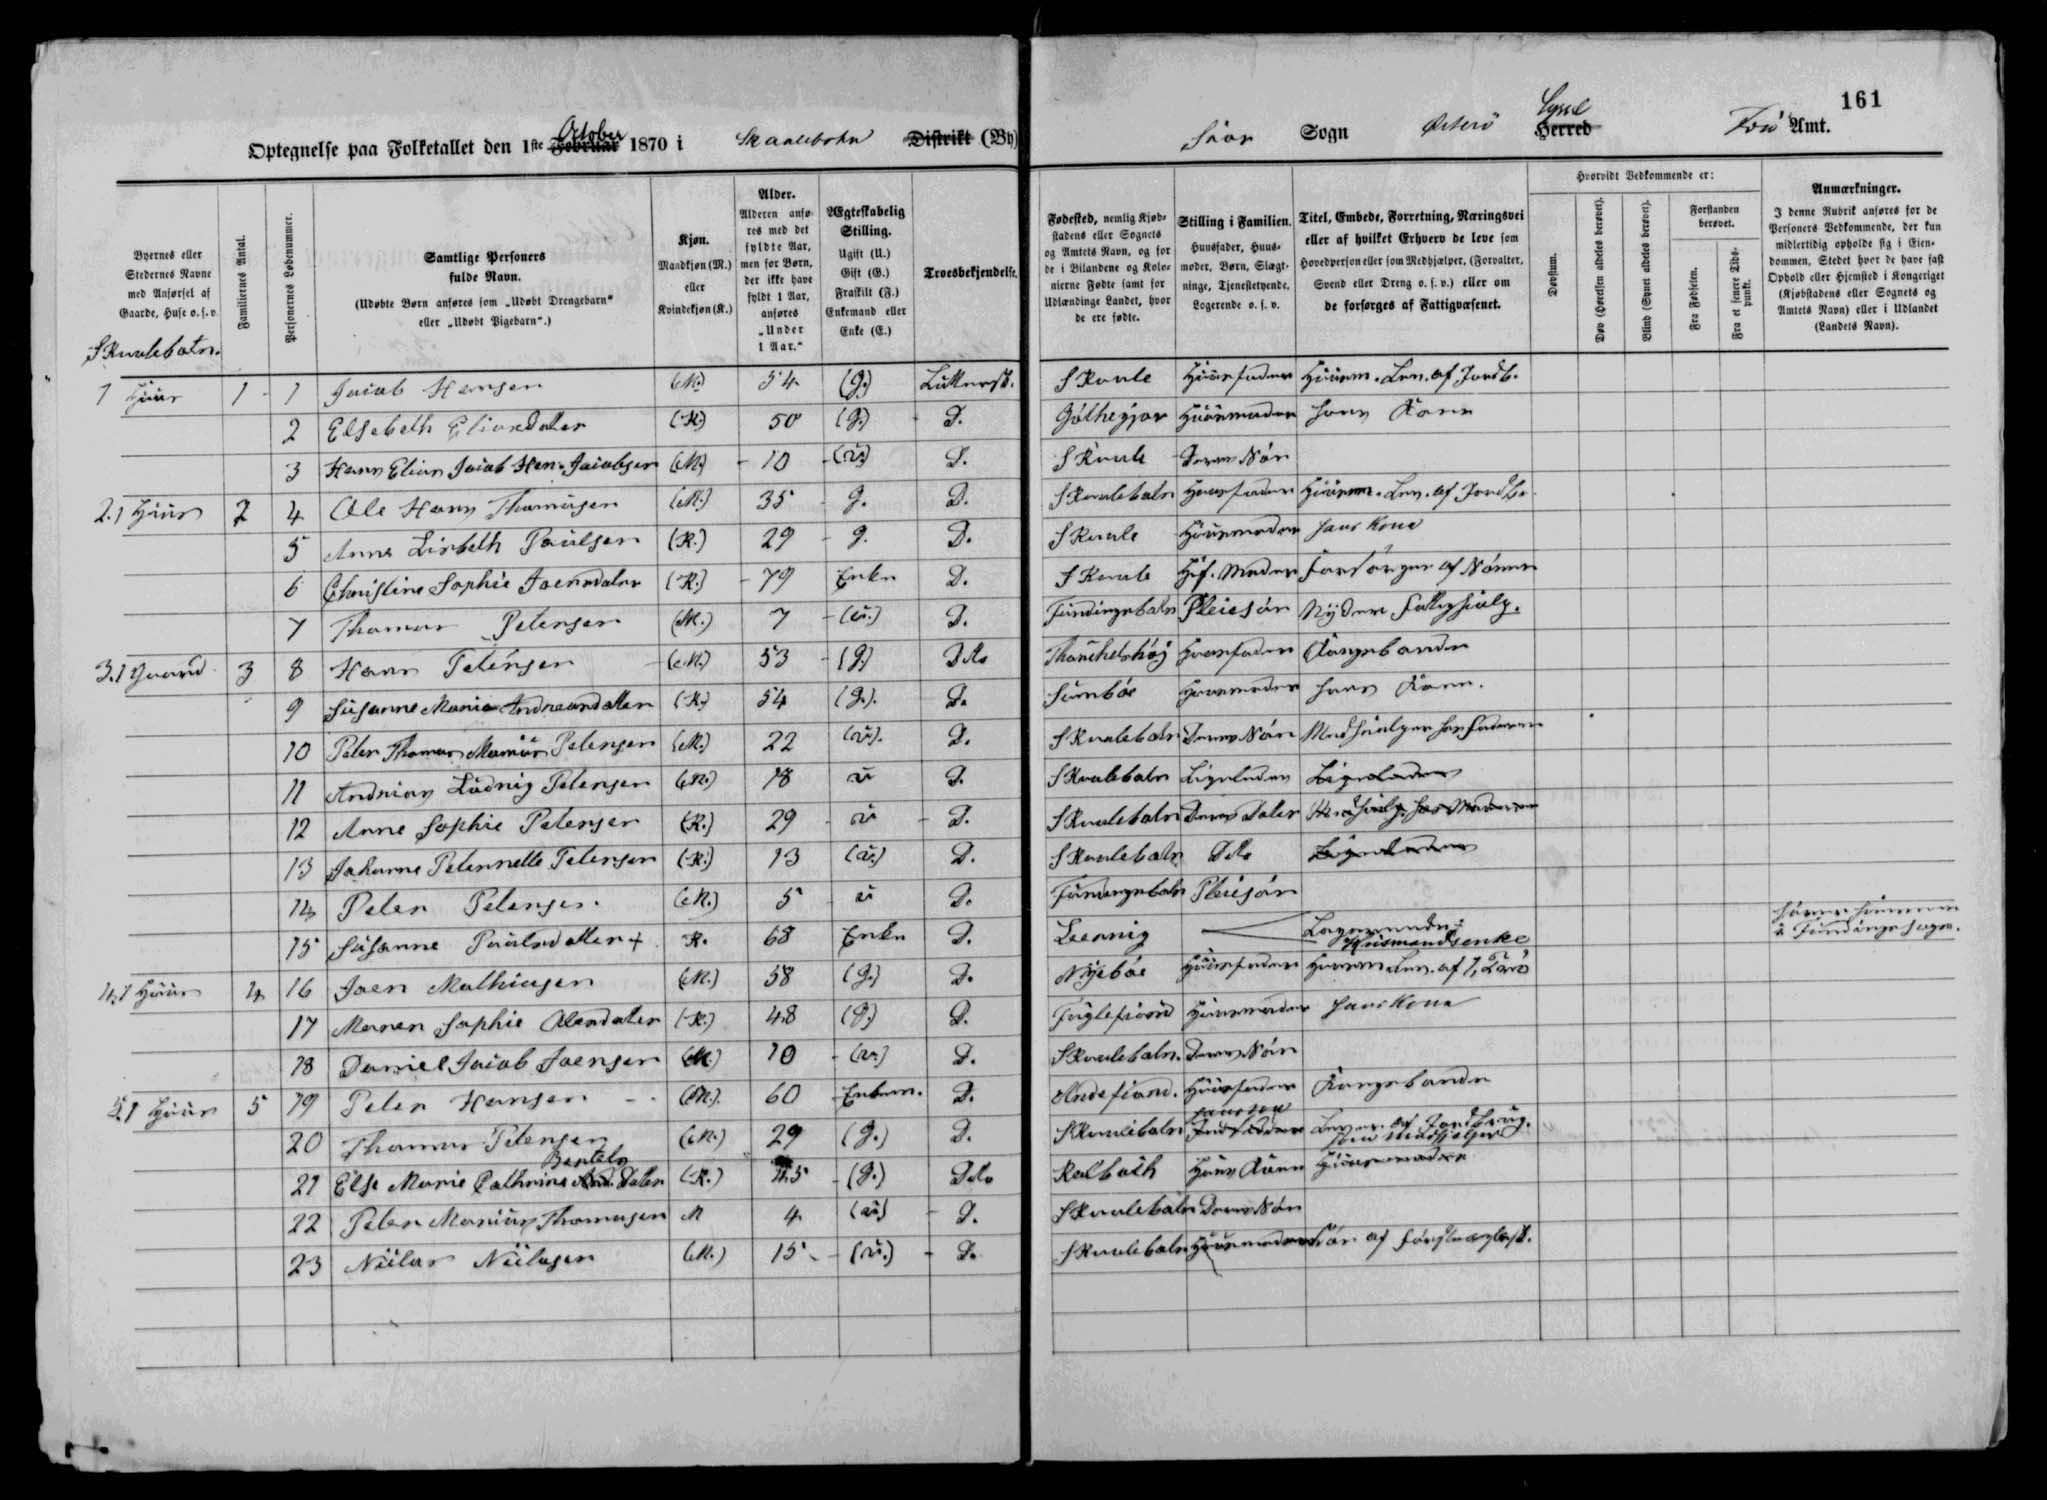 161
October
Syssel
Optegnelse paa Folketallet den 1ste Februar 1870 i Skaalebotn Distrikt (By) Sogn Østerö Herred Amt.
Byernes eller Stedernes Navne med Anførsel af Gaarde, Huse o.s.v.
Familiernes Antal.
Personernes Løbenummer.
Samtlige Personers fulde Navn.
(Udøbte Børn anføres som „Udøbt Drengebarn“ eller „Udøbt Pigebarn“.)
Kjøn.
Mandkjøn (M.) eller Kvindekjøn (K.)
Alder.
Alderen anføres med det fyldte Aar, men for Børn, der ikke have fyldt 1 Aar, anføres „Under 1 Aar.“
Ægteskabelig Stilling.
Ugift (U.) Gift (G.) Fraskilt (F.) Enkemand eller Enke (E.)
Troesbekjendelse.
Fødested, nemlig Kjøbstadens eller Sognets og Amtets Navn, og for de i Bilandene og Kolonierne Fødte samt for Udlændinge Landet, hvor de ere fødte.
Stilling i Familien.
Huusfader, Huusmoder, Børn, Slægtninge, Tjenestetyende, Logerende o.s.v.
Titel, Embede, Forretning, Næringsvei eller af hvilket Erhverv de leve som Hovedperson eller som Medhjælper, (Forvalter, Svend eller Dreng o.s.v.) eller om de forsørges af Fattigvæsenet.
Hvorvidt Vedkommende er:
Døvstum.
Døv (Hørelsen aldeles berøvet).
Blind (Synet aldeles berøvet).
Forstanden berøvet.
Fra Fødselen.
Fra et senere Tidspunkt.
Anmærkninger.
I denne Rubrik anføres for de Personers Vedkommende, der kun midlertidig opholde sig i Eiendommen, Stedet hvor de have fast Ophold eller Hjemsted i Kongeriget (Kjøbstadens eller Sognets og Amtets Navn) eller i Udlandet (Landets Navn).
Skaalebotn.
1 Huus 1 1 Jacob Hansen (M.) 54 (g.) Luthersk. Skaale Huusfader Huusm. Lev. af Jordb.
2 Elsebeth Eliasdatter (K.) 50 (g.) D. Gøthegjov Huusmoder hans Kone
3 Hans Elias Jacob Han. Jacobsen (M.) 10 (u.) D. Skaale Deres Søn
2. 1 Huus 2 4 Ole Hans Thomasen (M.) 35 g. D. Skaalebotn Huusfader Huusm. Lev. af Jordb.
5 Anne Lisbeth Poulsen (K.) 29 g. D. Skaale Huusmoder hans Kone
6 Christine Sophie Joensdatter (K.) 79 Enke D. Skaale Moder Forsørges af Sønnen
7 Thomas Petersen (M.) 7 (u.) D. Fundingsbotn Pleiesøn Nyder
3. 1 Gaard 3 8 Hans Petersen (M.) 53 (g.) Dito Huusfader Kongsbonde
9 Susanne Marie Andreasdatter (K.) 54 (g.). D. Sumbøe Huusmoder hans Kone.
10 Peter Thomas Marius Petersen (M.) 22 (u.). D. Skaalebotn Deres Søn Medhjælper hos Faderen
11 Andrias Ludvig Petersen (M.) 18 u D. Skaalebotn Ligeledes Ligeledes
12 Anne Sophie Petersen (K.) 29 u D. Skaalebotn Deres Datter Medhjælp. hos Moderen
13 Johanne Peternelle Petersen (K.) 13 (u.) D. Skaalebotn Dito Ligeledes
14 Peter Petersen (M.) 5 u D. Fundingsbotn Pleiesøn
15 Susanne Poulsdatter + K. 68 Enke D. Leervig Logerende Huusmandsenke
4. 1 Huus 4 16 Joen Mathiasen (M.) 58 (g.) D. Nyebøe Huusfader
17 Maren Sophie Olesdatter (K.) 48 (g.) D. Fuglefiord Huusmoder hans Kone
18 Daniel Jacob Joensen (M) 10 (u.) D. Skaalebotn. Deres Søn
5. 1 Huus 5 19 Peter Hansen (M.). 60 Enkem. D. Andefiord. Huusfader Kongsbonde
20 Thomas Petersen (M.) 29 (g.) D. Skaalebotn
21 Else Marie Cathrine Datter (K.) 45 (g.) Dito Kalbach Hans Kone Huusmoder
22 Peter Marius Thomasen M 4 (u) D. Skaalebotn Deres Søn
23 Niclas Niclasen (M.) 15 (u.) D. Skaalebotn